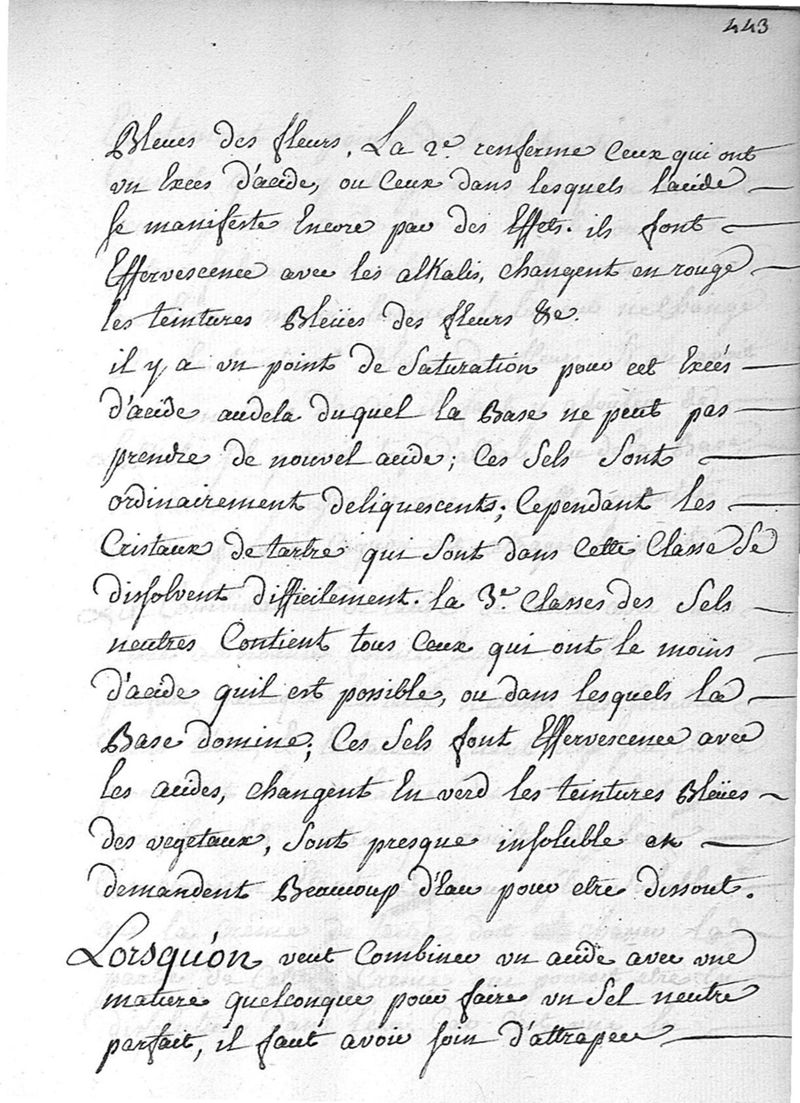 443
Bleues des fleurs. La 2e. renferme Ceux qui ont
vn Exces d'acide, ou Ceux dans lesquels l'acide
se manifeste Encore par des Effets. ils font
Effervescence avec les alkalis, changent en rouge
les teintures Bleües des fleurs &c.
il y a vn point de Saturation pour cet Excés
d'acide audela duquel la Base ne peut pas
prendre de nouvel acide; Ces Sels Sont
ordinairement deliquescents; Cependant les
Cristaux de tartre qui Sont dans Cette Classe Se
dissolvent difficilement. la 3e. Classes des Sels
neutres Contient tous Ceux qui ont le moins
d'acide quil est possible, ou dans lesquels la
Base domine; Ces Sels font Effervescence avec
les acides, changent En verd les teintures Bleües
des vegetaux, Sont presque insoluble en
demandent Beaucoup d'Eau pour etre dissout.
Lorsqu'on veut Combiner vn acide avec vne
matiere quelconque pour faire vn Sel neutre
parfait, il faut avoir soin d'attraper